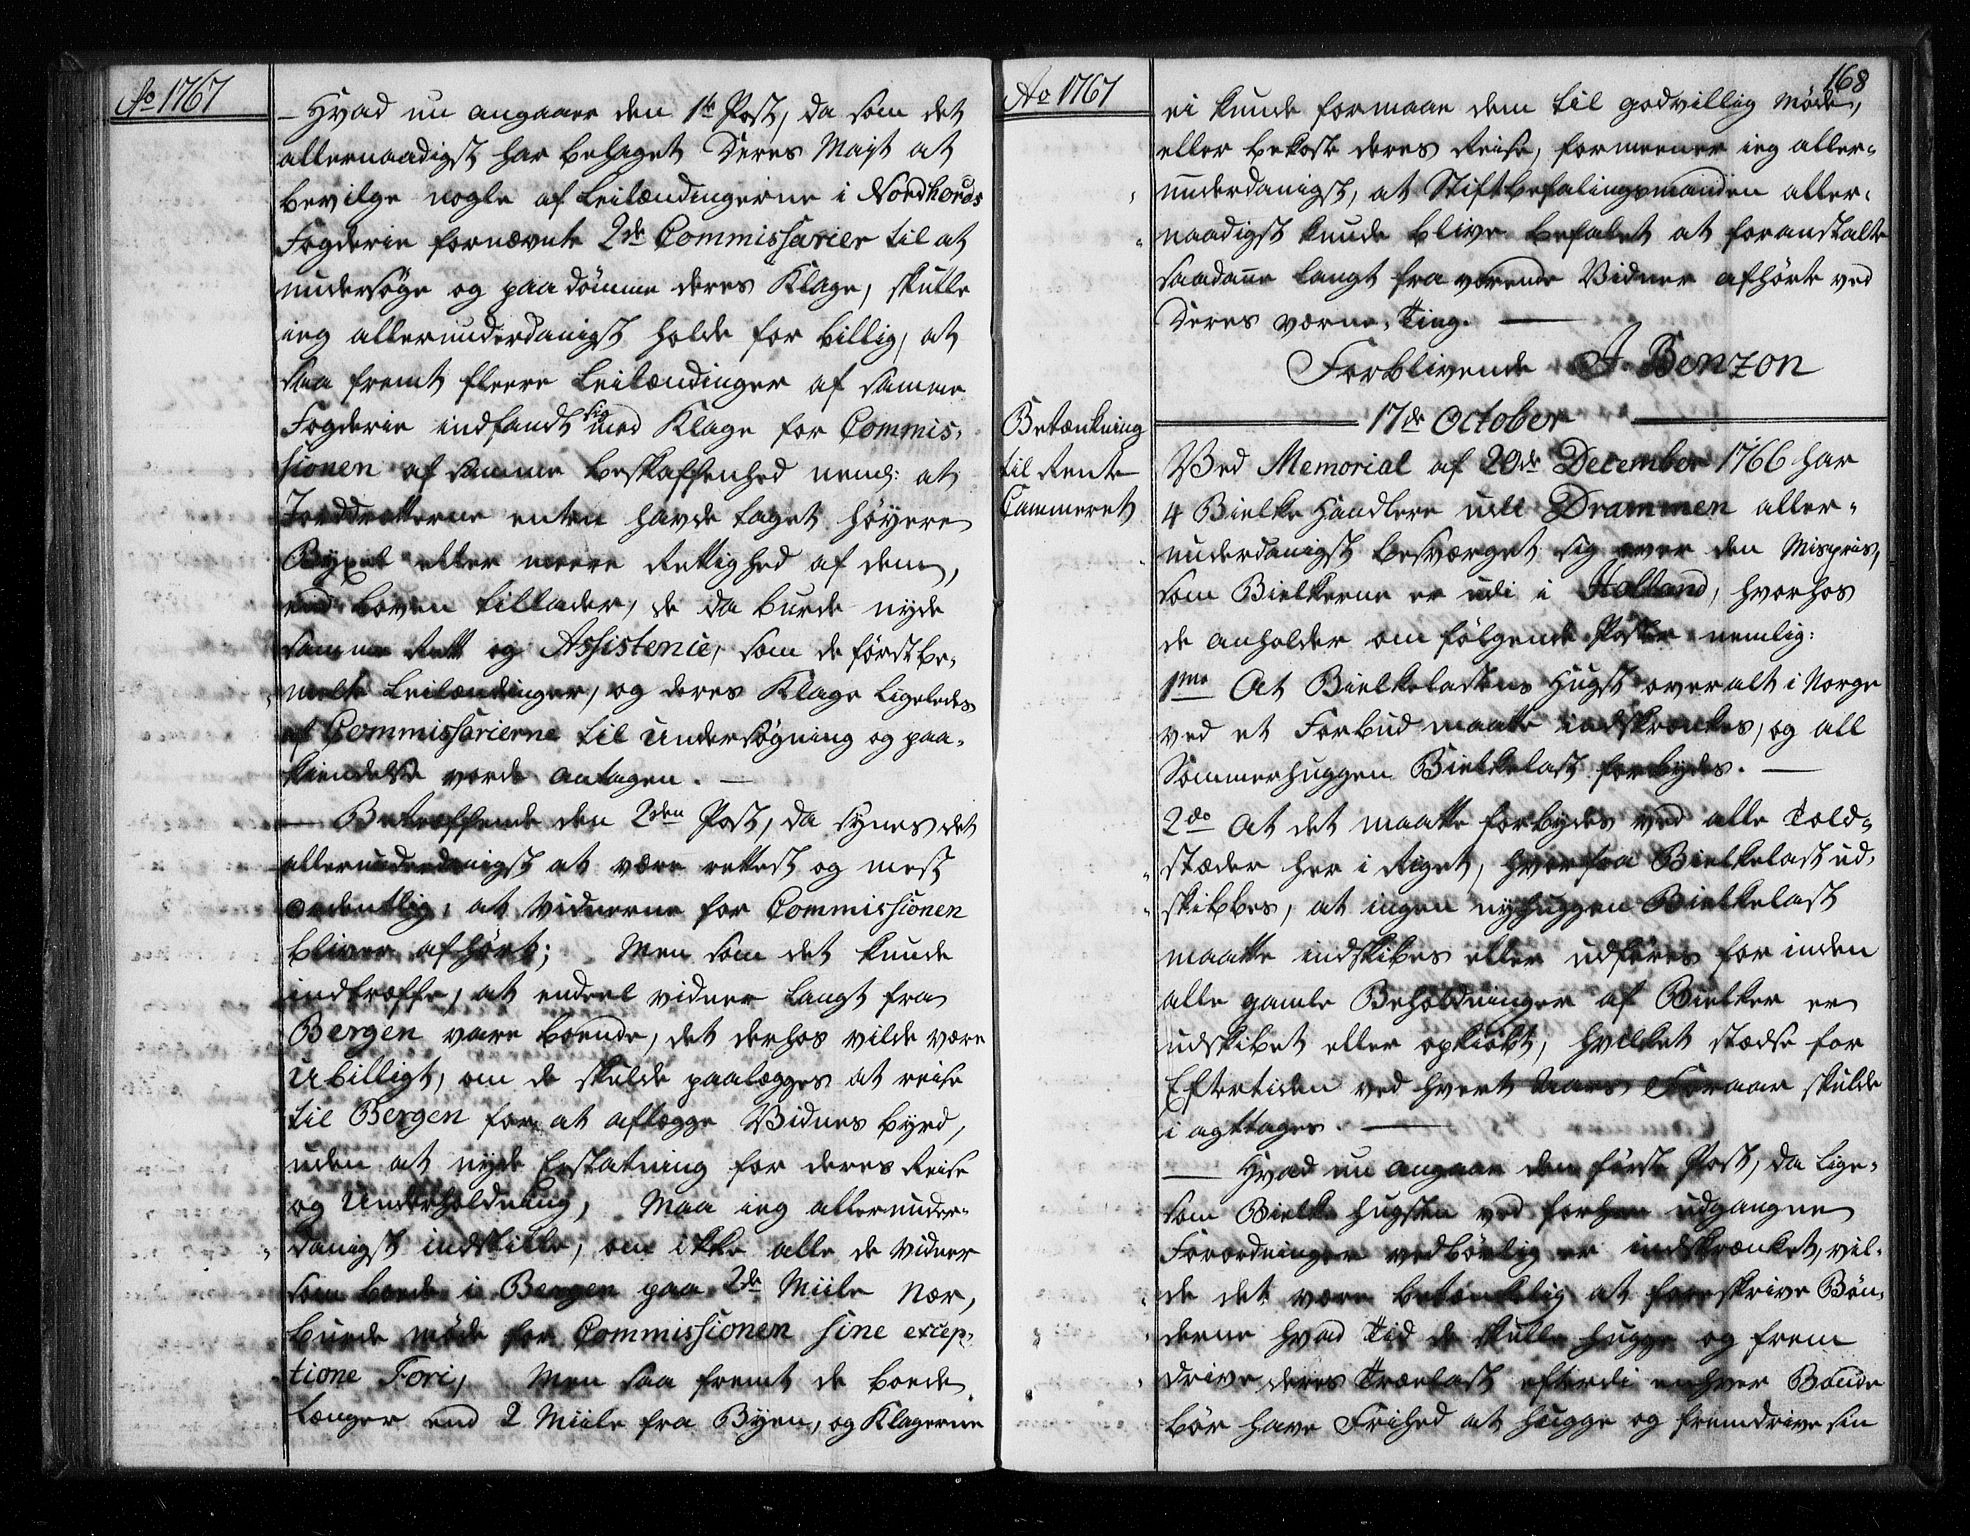 Ao 1767
– Hvad nu angaaer den 1te Post, da som det
allernaadigst har behaget Deres Majt at
bevilge nogle af Leilændingerne i Nordhords
Fogderie fornævnte 2de Commissarier til at
undersøge og paadømme deres Klage, skulle
ieg allerunderdanigst holde for billig, at
saa fremt fleere Leilændinger af samme
Fogderie indfandt sig med Klage for Commis-
sionen af samme beskaffenhed neml: at
Jorddrotterne enten havde taget høyere
Bygsel eller meere Rettighed af dem,
end Loven tillader, de da burde nyde
samme Rett og Assistence, som de førstbe-
melte Leilændinger, og deres Klage ligeledes
af Commissarierne til Undersøgning og paa-
kiendelse vorde antagen. –
– Betreffende den 2den Post, da synes det
allerunderdanigst at være rettest og mest
ordentlig, at Vidnerne for Commissionen
bliver afhørt; Men som det kunde
indtræffe, at endeel vidner langt fra
Bergen vare boende, det derhos vilde være
Ubilligt, om de skulde paalægges at reise
til Bergen for at aflægge Vidnes byrd,
uden at nyde Erstatning for deres Reise
og Underholdning, Maa ieg allerunder-
danigst indstille, om ikke alle de Vidner
som boede i Bergen paa 2de Miile nær,
burde møde for Commissionen sine excep-
tione Fori, Men saa fremt de boede
længer end 2 Miile fra Byen, og Klagerne
Ao 1767
168
ei kunde formaae dem til godvillig Møde,
eller bekoste deres Reise, formeener ieg aller-
underdanigst, at Stiftbefalingsmanden aller-
naadigst kunde blive befalet at foranstalte
saadanne langt fra værende Vidner afhørte ved
Deres værne-Ting. –
Forblivende J. Benzon
17de October
Betænkning
til Rente
Cammeret
Ved Memorial af 29de December 1766 har
4 Bielke Handlere udi Drammen aller-
underdanigst besværget sig over den Mispriis,
som Bielkerne er udi i Holland, hvorhos
de anholder om følgende Poster nemlig:
1mo At Bielkelastens Hugst overalt i Norge
ved et Forbud maatte indskrænkes, og all
Sommerhuggen Bielkelast forbydes. –
2do At det maatte forbydes ved alle Told-
stæder her i Riget, hvorfra Bielkelast ud-
skibbes, at ingen nyhuggen Bielkelast
maatte indskibes eller udføres for inden
alle gamle Beholdninger af Bielker er
udskibet eller opkiøbt, hvilket stædse for
Eftertiden ved hvert Aars Foraar skulde
i agttages. –
– Hvad nu angaaer den første Post, da lige-
som Bielke hugsten ved forhen udgangne
Forordninger vedbørlig er indskrænket, vil-
de det være betænkelig at foreskrive Bøn-
derne hvad Tid de skulle hugge og frem
drive deres Trælast efterdi enhver Bonde
bør have Frihed at hugge og fremdrive sin